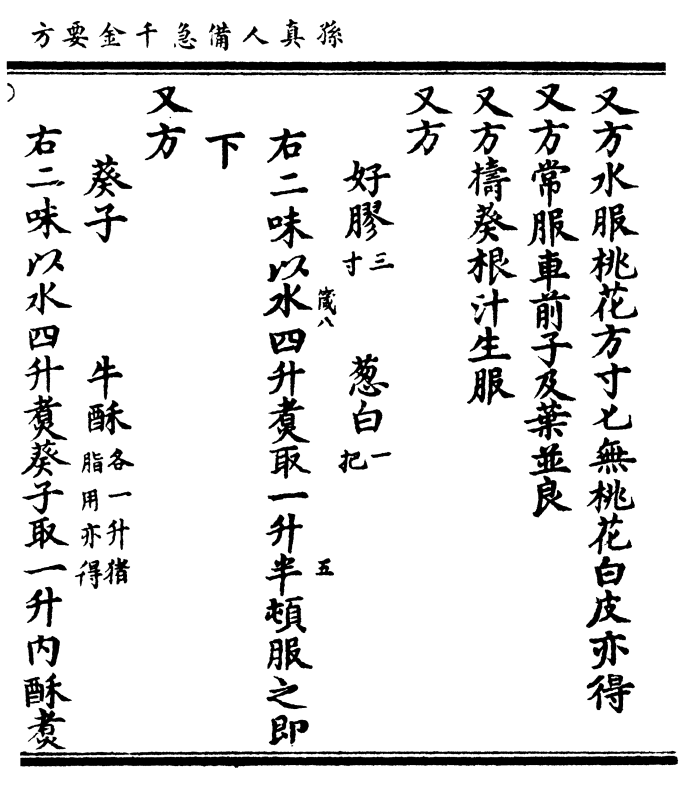 孫真人備急千金要方
又方水服桃花方寸匕無桃花白皮亦得
又方常服車前子及葉並良
又方擣葵根汁生服
又方
好膠三寸 葱白一把
右二味以水四升煑取一升半頓服之即
箴八
五
下
又方
葵子 牛酥各一升猪脂用亦得
右二味以水四升煑葵子取一升内酥煑